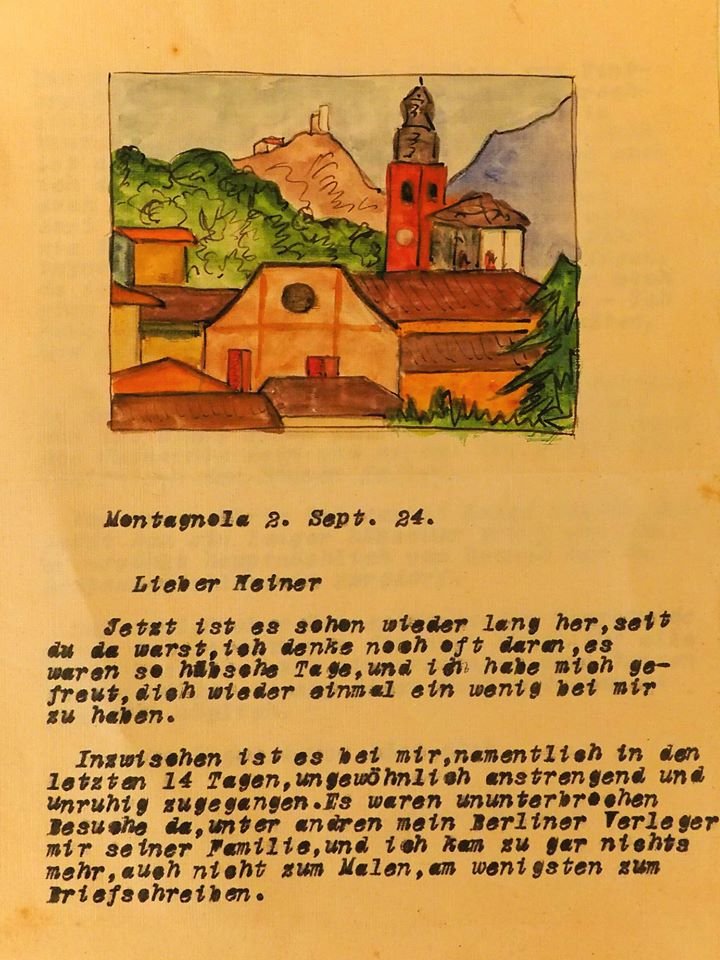 Montagnola 2. Sept. 24.
Lieber Heiner
Jetzt ist es schon wieder lang her,seit
du da warst,ich denke noch oft daran,es
waren so hübsche Tage,und ich habe mich ge-
freut,dich wieder einmal ein wenig bei mir
zu haben.
Inzwischen ist es bei mir,namentlich in den
letzten 14 Tagen,ungewöhnlich anstrengend und
unruhig zugegangen.Es waren ununterbrochen
Besuche da,unter andren mein Berliner Verleger
mir seiner Familie,und ich kam zu gar nichts
mehr,auch nicht zum Malen,am wenigsten zum
Briefschreiben.